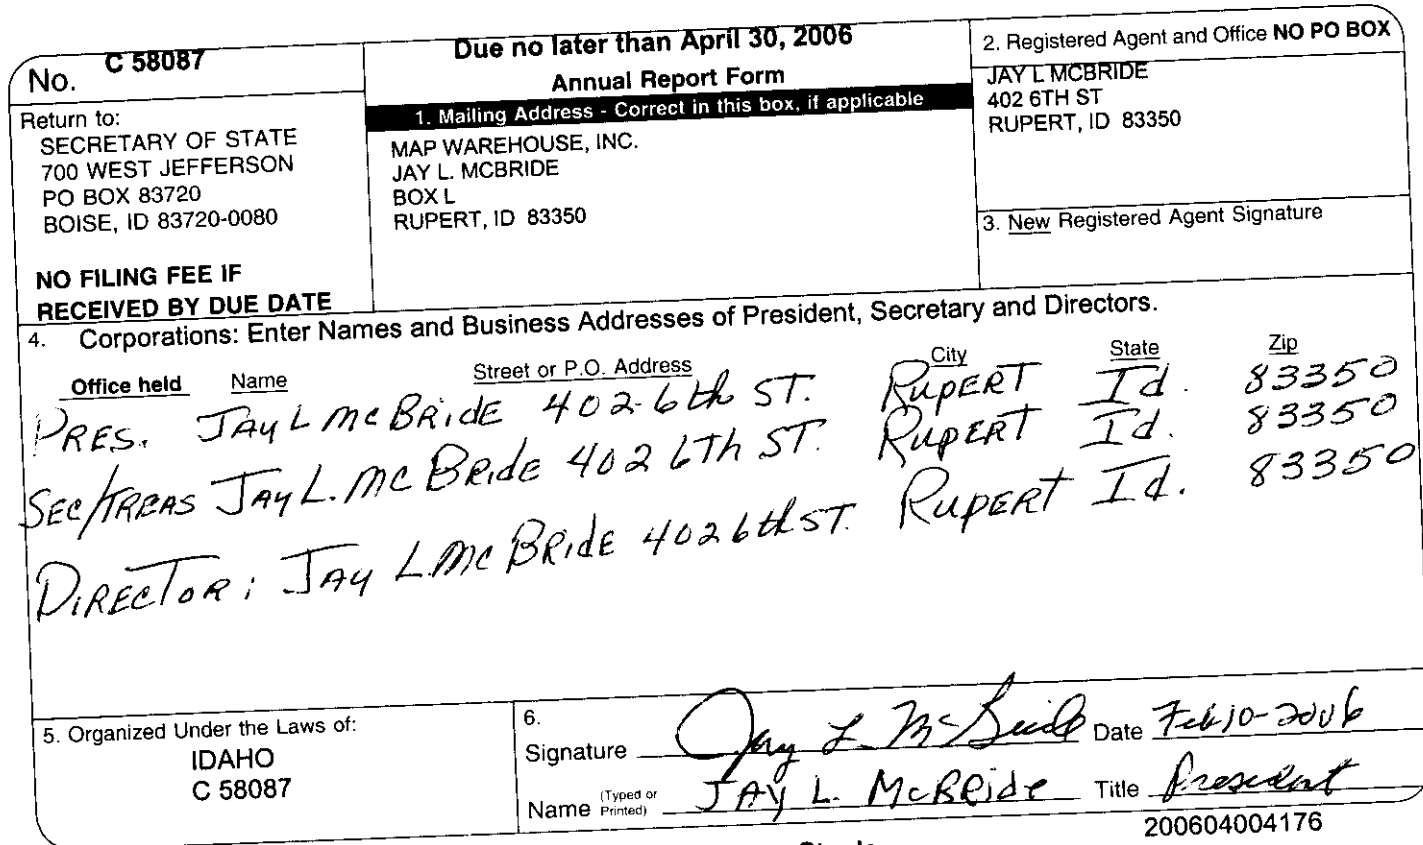 No. C 58087
Return to:
SECRETARY OF STATE
700 WEST JEFFERSON
PO BOX 83720
BOISE, ID 83720-0080
NO FILING FEE IF
RECEIVED BY DUE DATE
Due no later than April 30, 2006
Annual Report Form
1. Mailing Address - Correct in this box, if applicable
MAP WAREHOUSE, INC.
JAY L. MCBRIDE
BOX L
RUPERT, ID 83350
2. Registered Agent and Office NO PO BOX
JAY L MCBRIDE
402 6TH ST
RUPERT, ID 83350
3. New Registered Agent Signature
4. Corporations: Enter Names and Business Addresses of President, Secretary and Directors.
Office held Name Street or P.O. Address City State Zip
PRES. JAY L MCBRIDE 402-6th ST. RUPERT Id. 83350
SEC/TREAS JAY L. MCBRIDE 402 6Th ST. RUPERT Id. 83350
DIRECTOR: JAY L. MCBRIDE 402 6th ST. RUPERT Id. 83350
5. Organized Under the Laws of:
IDAHO
C 58087
6.
Signature Jay L McBride Date Feb 10-2006
Name (Typed or Printed) JAY L. McBRIDE Title President
200604004176